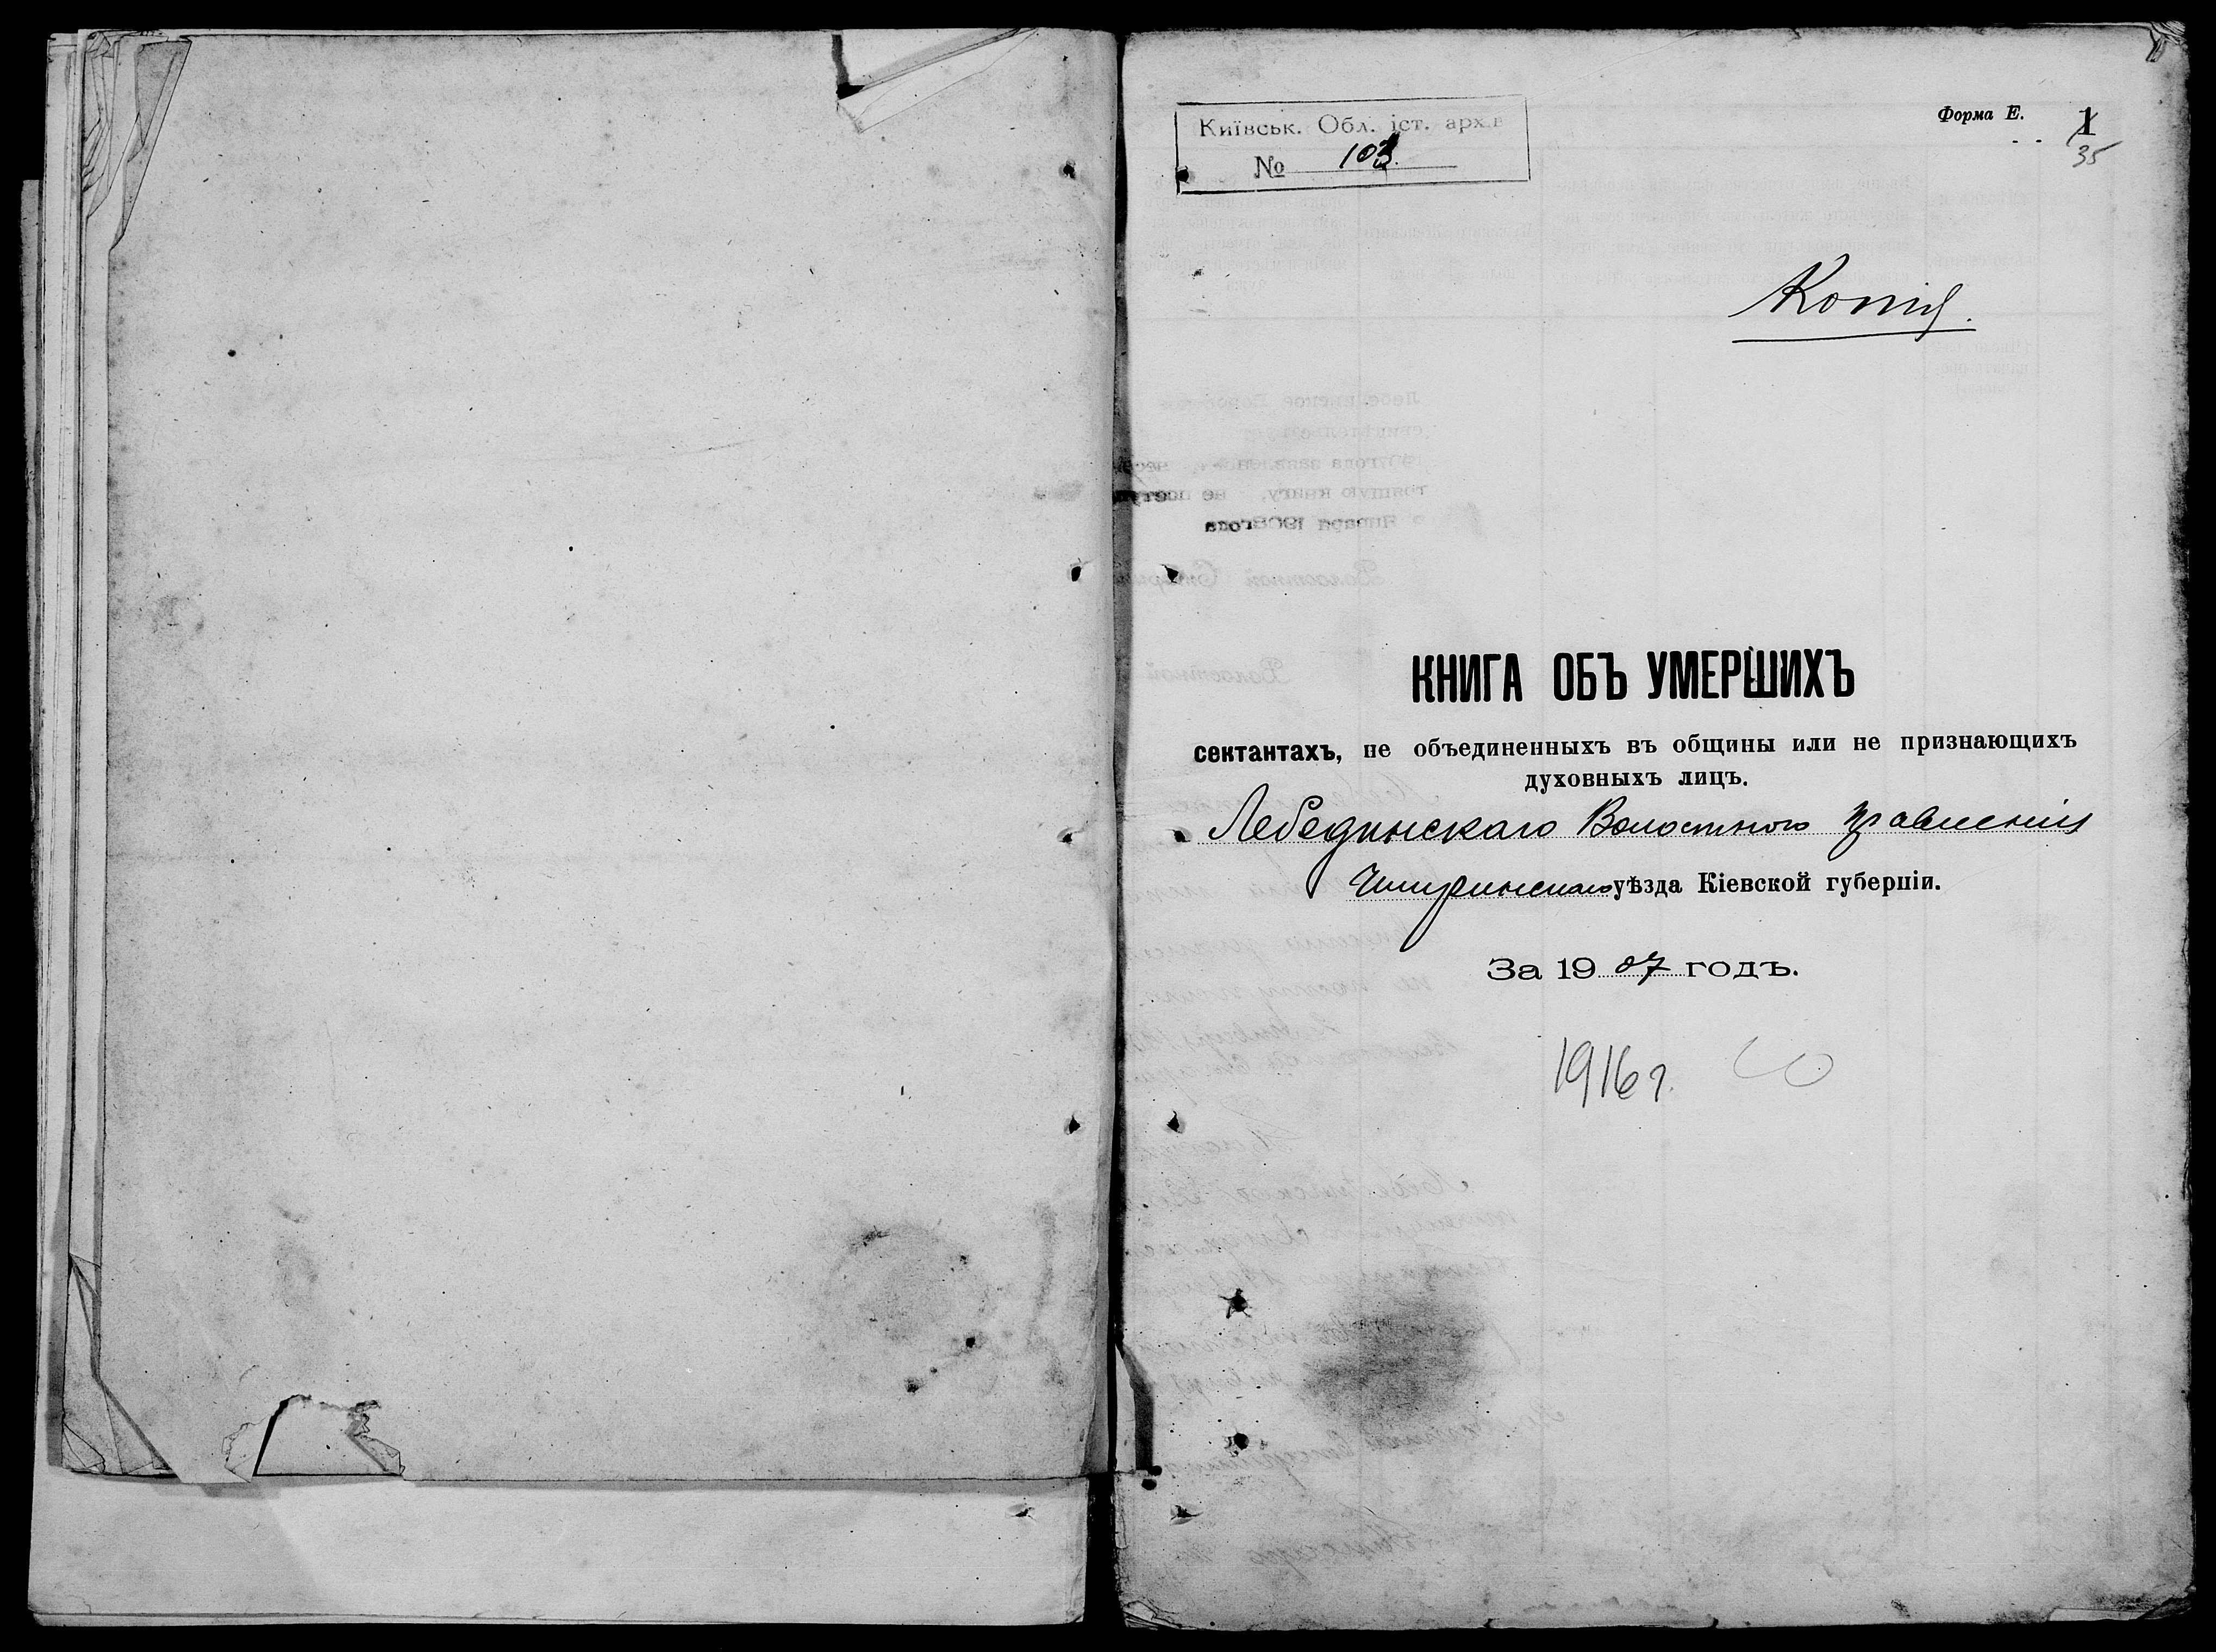 Київськ. Обл. іст. архів
№ 103
Форма Е.
1
35
Копія.
КНИГА ОБЪ УМЕРШИХЪ
сектантахъ, не объединенныхъ въ общины или не признающихъ
духовныхъ лицъ.
Лебединскаго Волостного Правленія
Чигиринскаго уѣзда Кіевской губерніи.
За 1907 годъ.
1916 г.